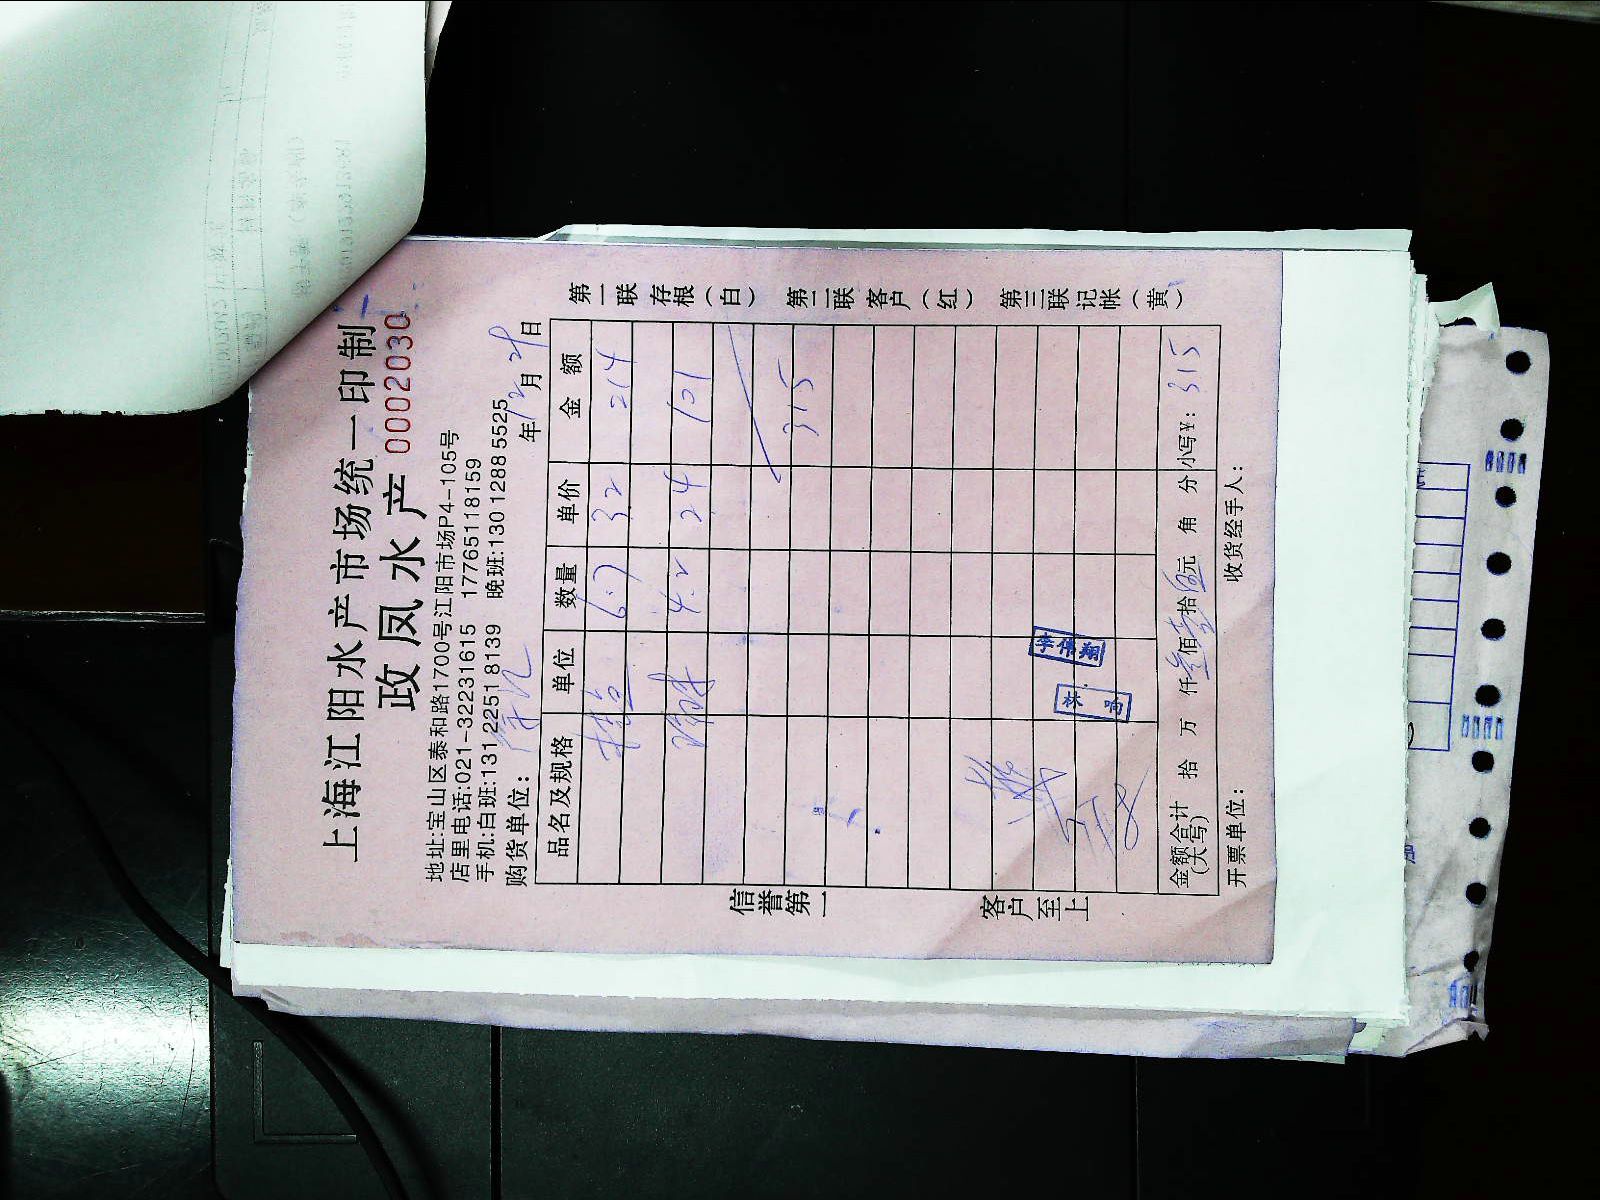 上海江阳水产市场统一印制
政凤水产 0002030
地址:宝山区泰和路1700号江阳市场P4-105号
店里电话:021-32231615 17765118159
手机:白班:131 2251 8139 晚班:130 1288 5525
购货单位: 年12月29日
品名及规格 单位 数量 单价 金额
6.7 32 214
4.2 24 101
315
李伟翔
金额合计(大写) 拾 万 仟叁佰壹拾伍元 角 分 小写¥: 315
开票单位: 收货经手人:
信誉第一 客户至上
第一联 存根(白) 第二联 客户(红) 第三联 记帐(黄)